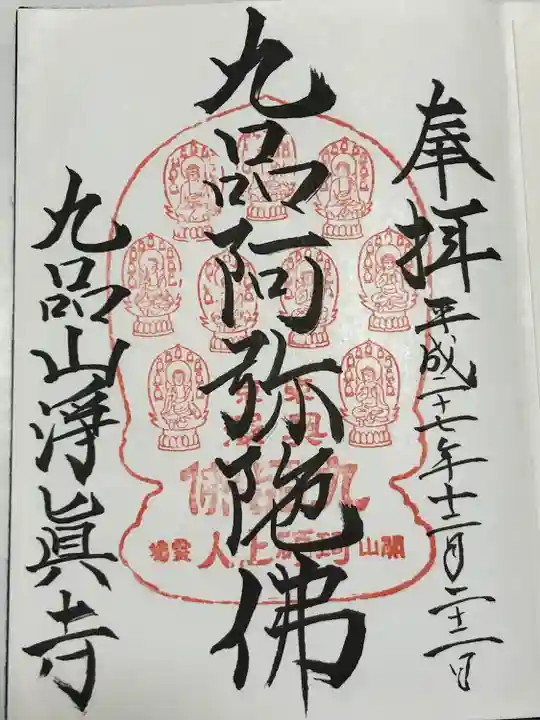 奉拝 平成二十七年十二月二十二日
九品阿弥陀佛
九品山淨眞寺
九品佛
開山珂碩上人